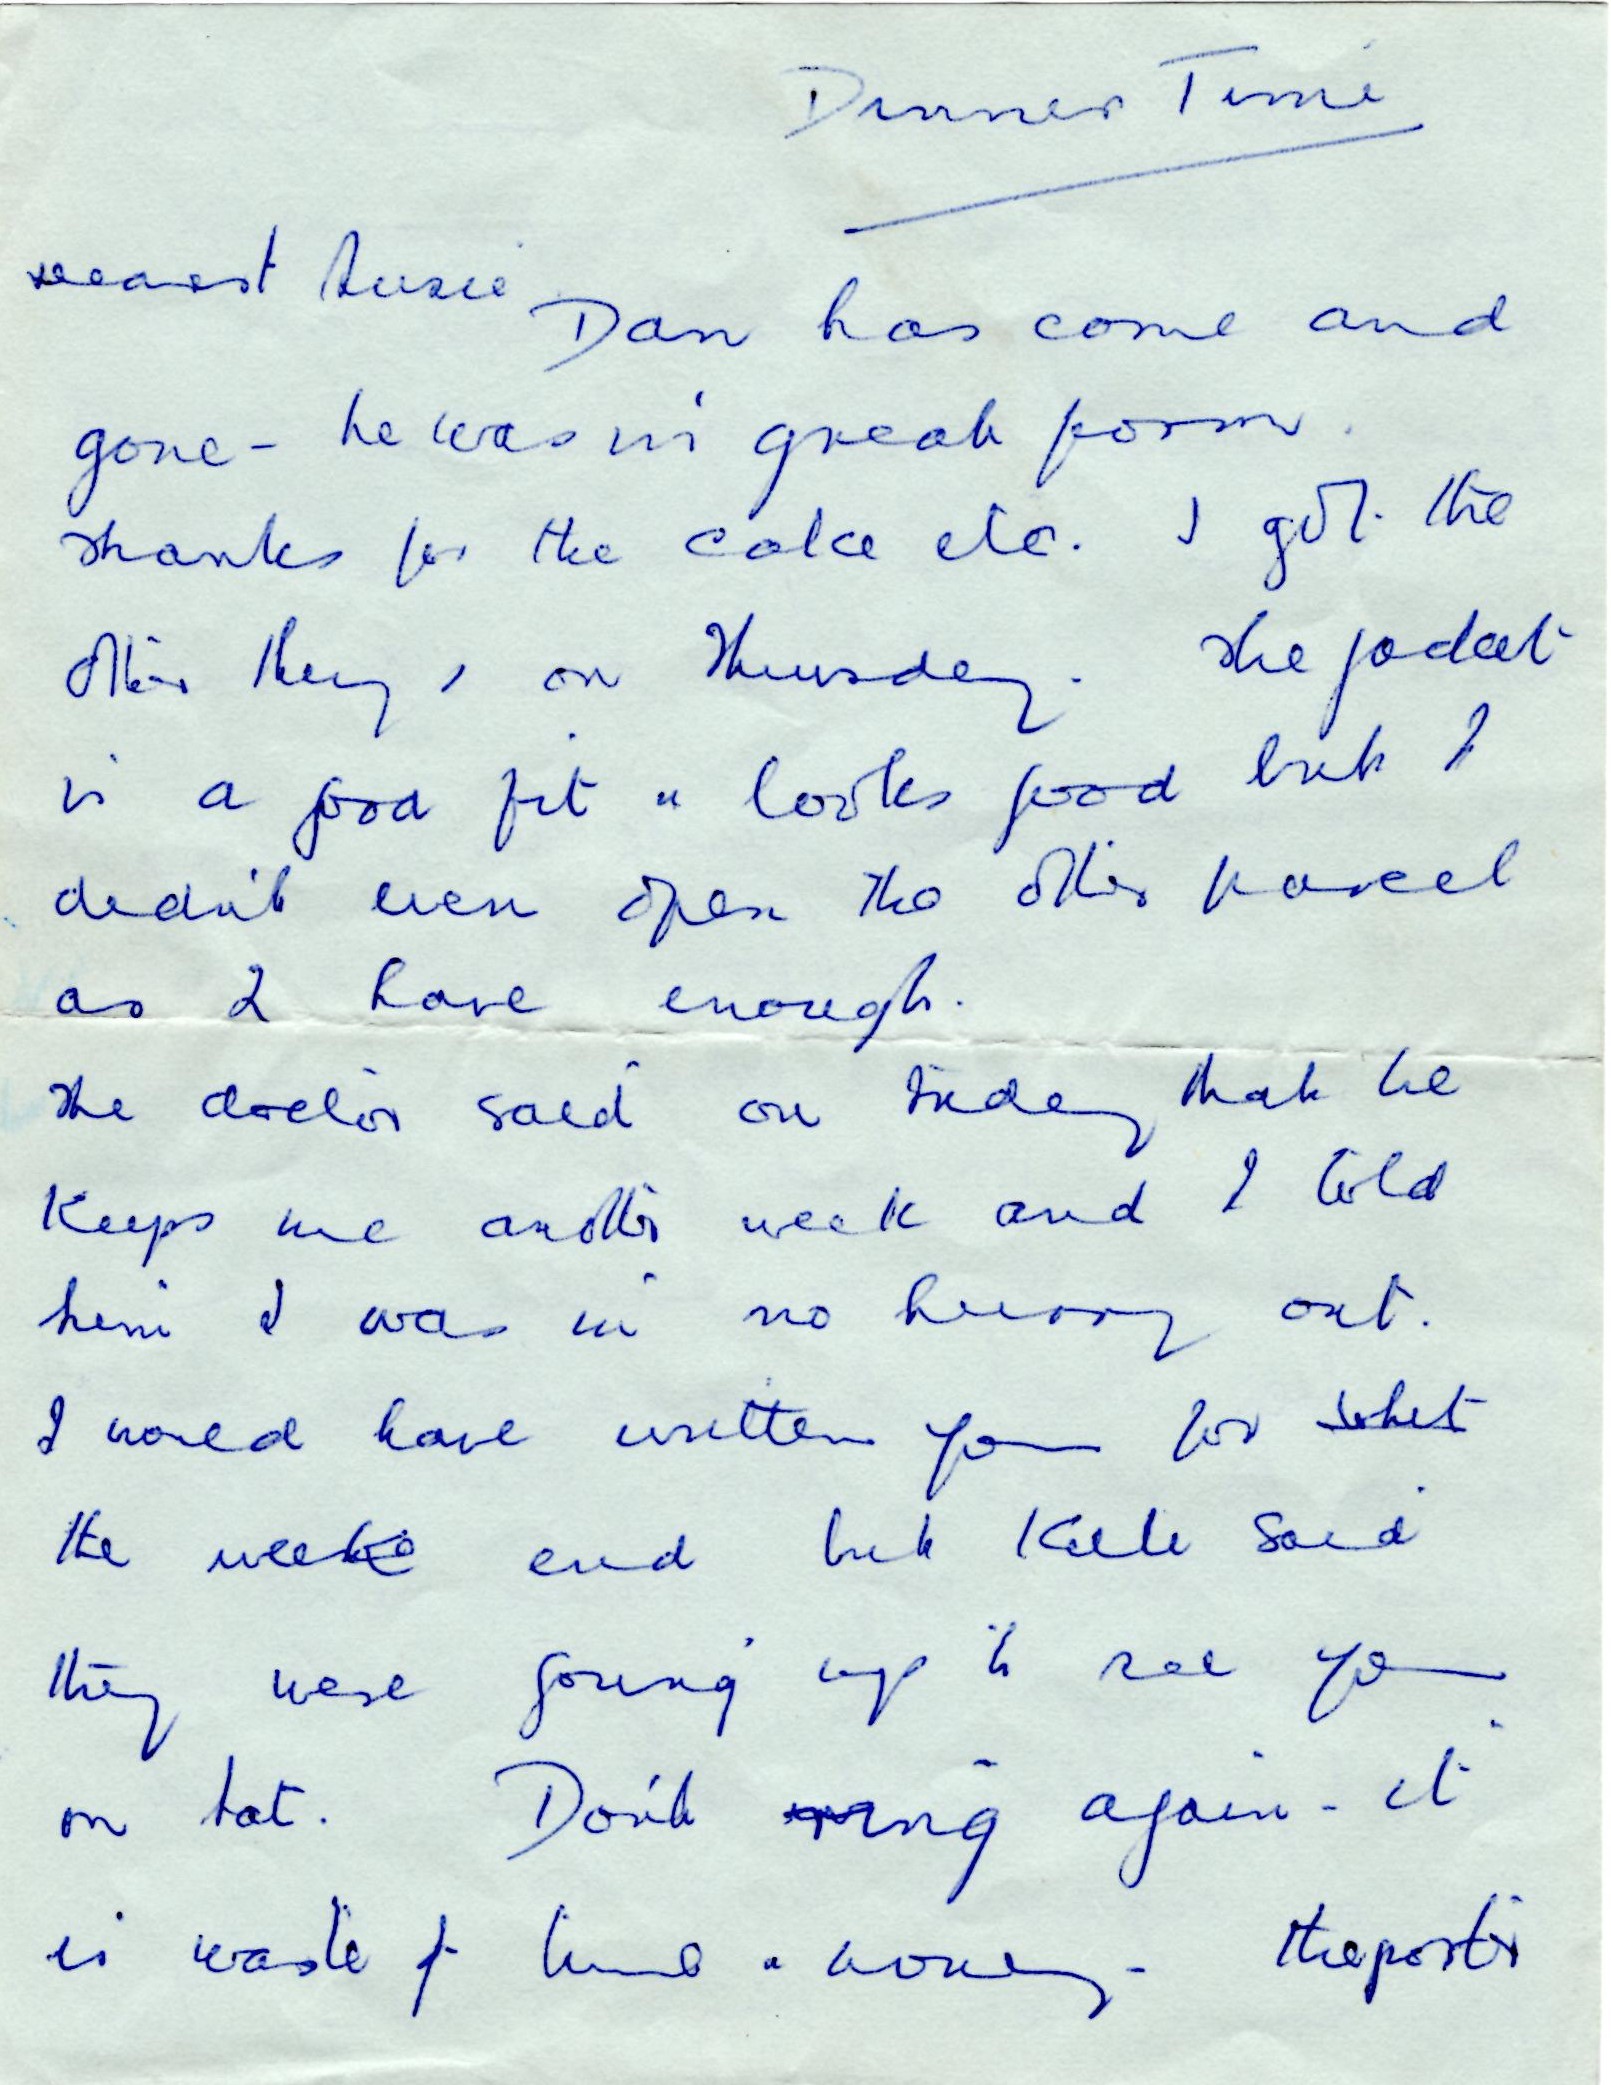 Dinner Time
Dearest Susie
Dan has come and
gone - he was in great form.
Thanks for the cake etc. I got the
other things on Thursday. The jacket
is a good fit & looks good but I
didn't even open the other parcel
as I have enough.
The doctor said on Friday that he
keeps me another week and I told
him I was in no hurry out.
I would have written you for
the week end but said
they were going up to see you
on Sat. Don't ring again - it
is waste of time & money - the porter